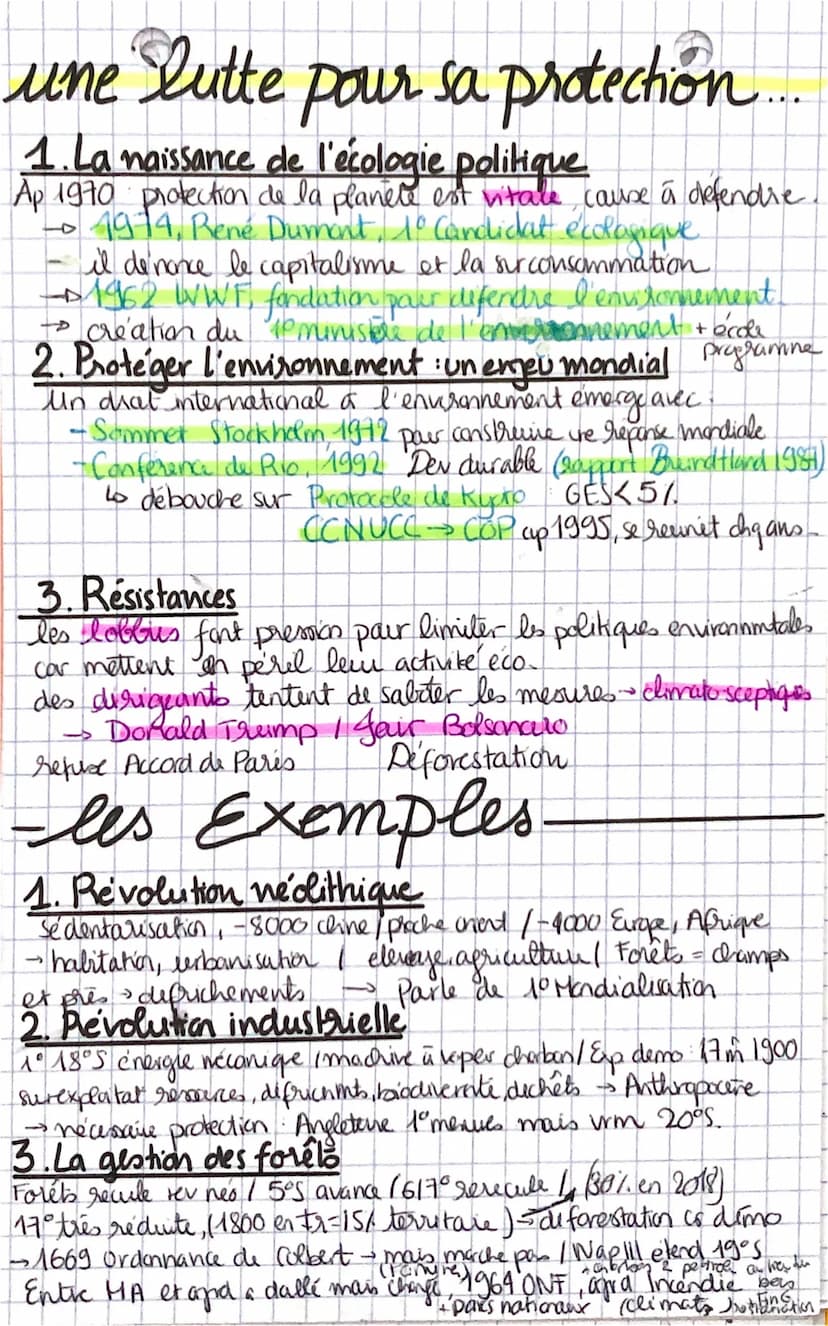 une lutte pour sa protection...
1. La naissance de l'écologie politique
Ap 1970 protection de la planète est vitale, cause à défendre.
→ 1974, René Dumont, 1° Candidat écologique
- il dénonce le capitalisme et la surconsommation
→ 1962 WWF, fondation pour défendre l'environnement
→ création du 1° ministère de l'environnement + école
programme
2. Protéger l'environnement : un enjeu mondial
Un droit international à l'environnement émerge avec :
- Sommet Stockholm, 1972 pour construire une réponse mondiale
- Conférence de Rio, 1992 Dev durable (rapport Brundtland 1987)
↳ débouche sur Protocole de Kyoto GES<5%
CCNUCC → COP ap 1995, se réunit chq ans
3. Résistances
les lobbys font pression pour limiter les politiques environnmtales
car mettent en péril leur activité éco.
des dirigeants tentent de saboter les mesures → climatosceptiques
→ Donald Trump / Jair Bolsonaro
refuse Accord de Paris Déforestation
- les Exemples
1. Révolution néolithique
Sédentarisation, -8000 chine / proche orient / -4000 Europe, Afrique
→ habitation, urbanisation / élevage, agriculture / Forêts = champs
et prés → défrichements → Parle de 1° Mondialisation
2. Révolution industrielle
1° 18°S énergie mécanique / machine à vaper charbon / Exp demo : 1900
surexploitat ressources, défrichmts, biodiversité, déchets → Anthropocène
→ nécessaire protection : Angleterre 1° mesures mais vrm 20°S.
3. La gestion des forêts
Forêts recule rev néo / 5°S avance / 6/7° rerecule ↳ (30% en 2018)
17° très réduite, (1800 en Fr = 15% territoire) → déforestation démo
→ 1669 Ordonnance de Colbert → mais marche pas / Nap III étend 19°S
(rainure) + charbon & pétrole au lieu du
bois
Entre MA et ajrd a dablé mais change, 1964 ONF, ajrd Incendie
+ parcs nationaux (climat,